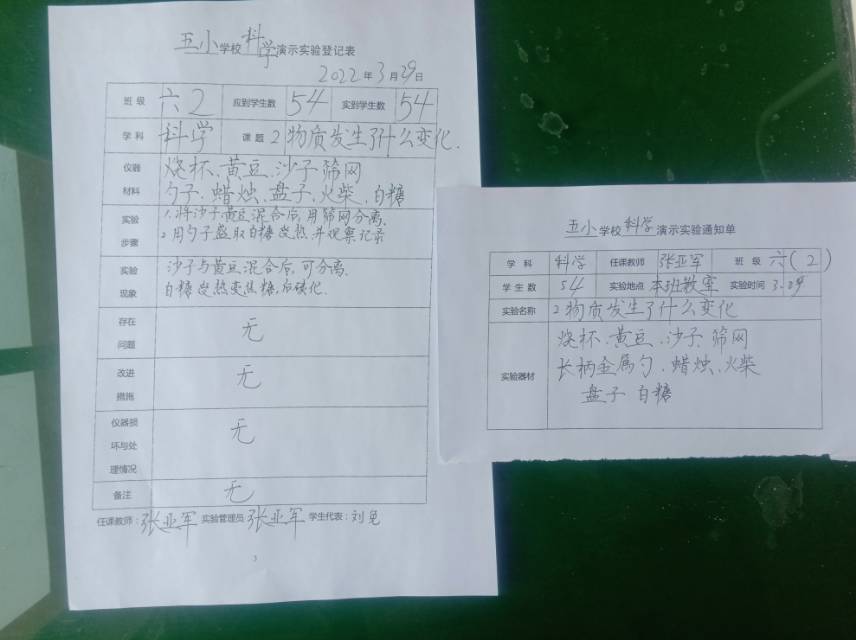 五小学校科学演示实验登记表
2022年3月29日
班级 六2 应到学生数 54 实到学生数 54
学科 科学 课题 2物质发生了什么变化.
仪器材料 烧杯、黄豆、沙子 筛网
勺子、蜡烛、盘子、火柴、白糖
实验步骤 1.将沙子、黄豆混合后,用筛网分离.
2.用勺子盛取白糖加热并观察记录
实验现象 沙子与黄豆混合后,可分离.
白糖加热变焦糖,后碳化.
存在问题 无
改进措施 无
仪器损坏与处理情况 无
备注 无
任课教师:张亚军 实验管理员 张亚军 学生代表:刘
3
五小学校科学演示实验通知单
学科 科学 任课教师 张亚军 班级 六(2)
学生数 54 实验地点 本班教室 实验时间 3.29
实验名称 2物质发生了什么变化
实验器材 烧杯、黄豆、沙子 筛网
长柄金属勺、蜡烛、火柴
盘子 白糖